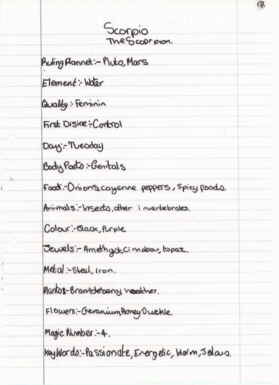 Scorpio
The Scorpion.
Ruling Plannet:- Pluto, Mars
Element:- Water
Quality:- Feminin
First Disire:- Control
Day:- Tuesday
Body Parts:- Genitals
Food:- Onions, cayenne peppers, Spicy foods.
Animals:- Insects, other invertebrates.
Colour:- Black, Purple
Jewels:- Amethyst, topaz.
Metal:- Steel, Iron.
Plants:- heather.
Flowers:- Geranium, Honey Suckle
Magic Number:- 4.
Key Words:- Passionate, Energetic, Warm, Jelous